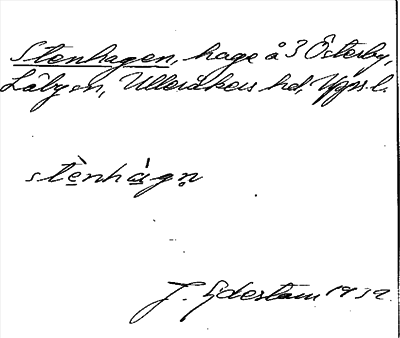 Stenhagen, hage å 3 Österby,
Läby sn, Ulleråkers hd, Upps. l.
stènhág̣n̥
J. Ejdestam 1932.